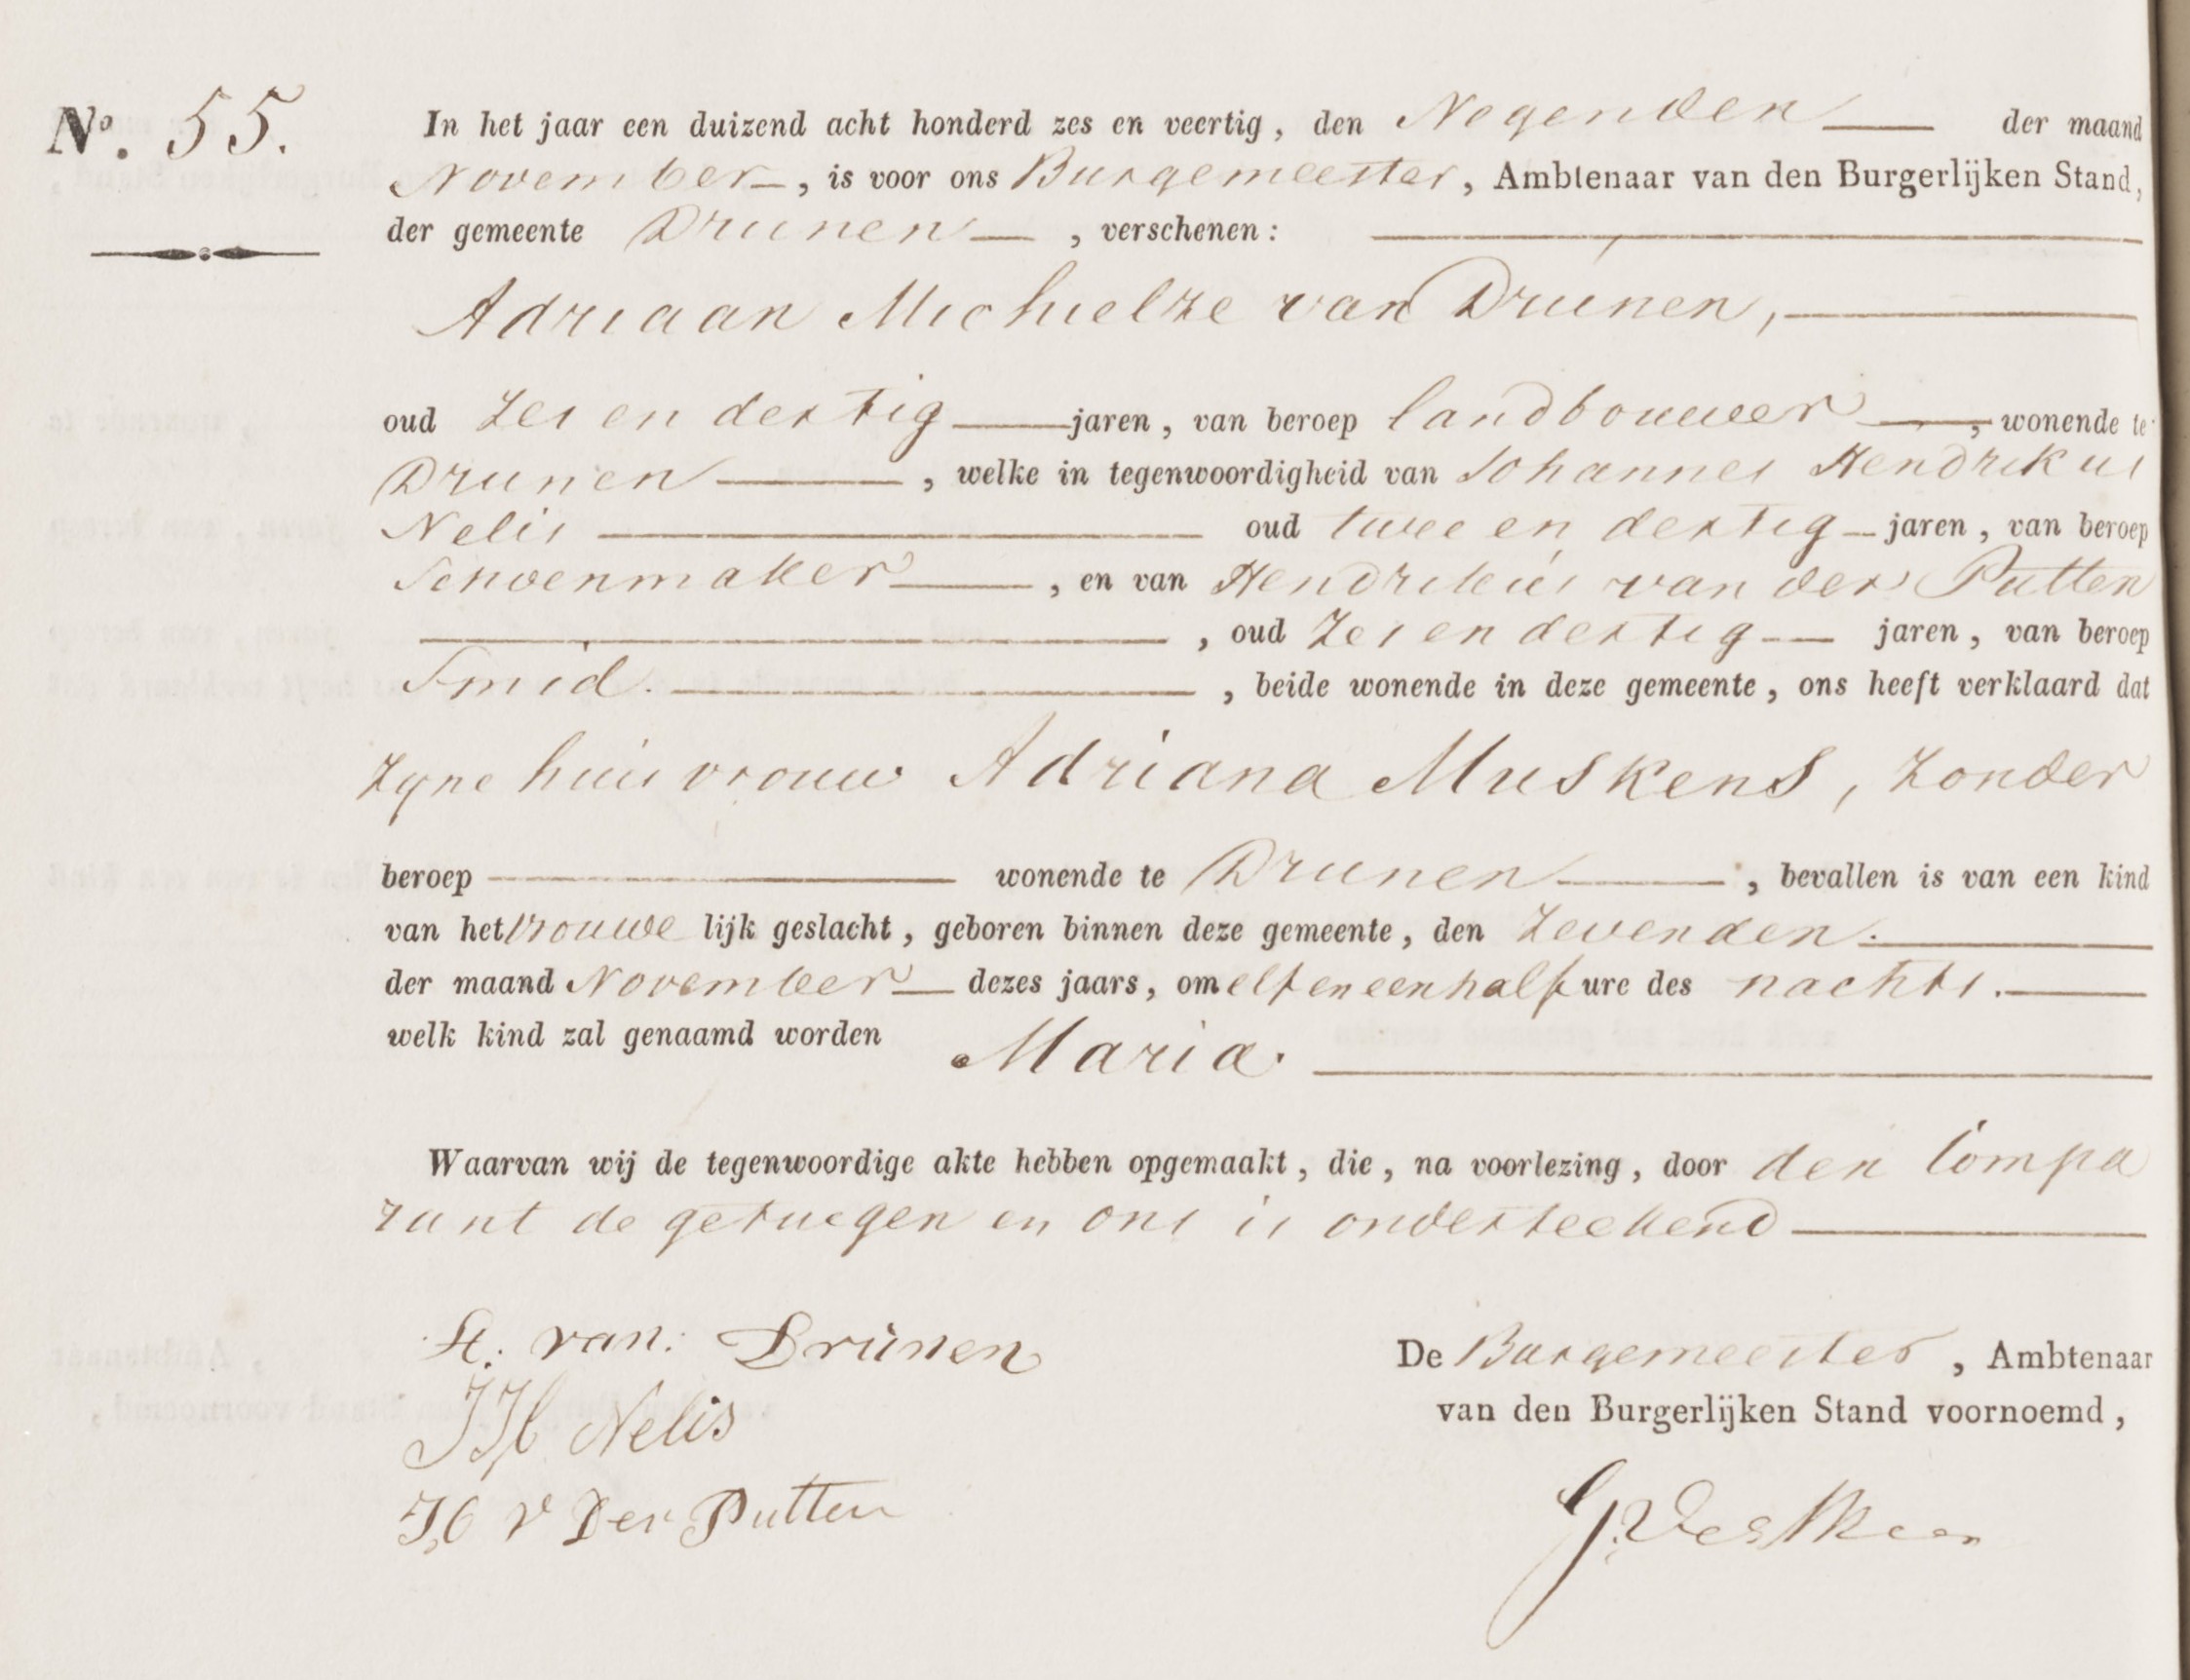 No. 55.
In het jaar een duizend acht honderd zes en veertig, den Negenden der maand
November, is voor ons Burgemeester, Ambtenaar van den Burgerlijken Stand,
der gemeente Drunen, verschenen:
Adriaan Michielze van Drunen,
oud Zes en dertig jaren, van beroep landbouwer, wonende te
Drunen, welke in tegenwoordigheid van Johannes Hendrikus
Nelis oud twee en dertig jaren, van beroep
Schoenmaker, en van Hendrikus van der Putten
, oud Zes en dertig jaren, van beroep
Smid., beide wonende in deze gemeente, ons heeft verklaard dat
Zyne huisvrouw Adriana Muskens, Zonder
beroep wonende te Drunen, bevallen is van een kind
van het vrouwe lijk geslacht, geboren binnen deze gemeente, den Zevenden.
der maand November dezes jaars, om elf en een half ure des nachts.
welk kind zal genaamd worden Maria.
Waarvan wij de tegenwoordige akte hebben opgemaakt, die, na voorlezing, door den Compa
rant de getuegen en ons is onderteekend
A. van. Drunen
JH Nelis
H V Der Putten
De Burgemeester, Ambtenaar
van den Burgerlijken Stand voornoemd,